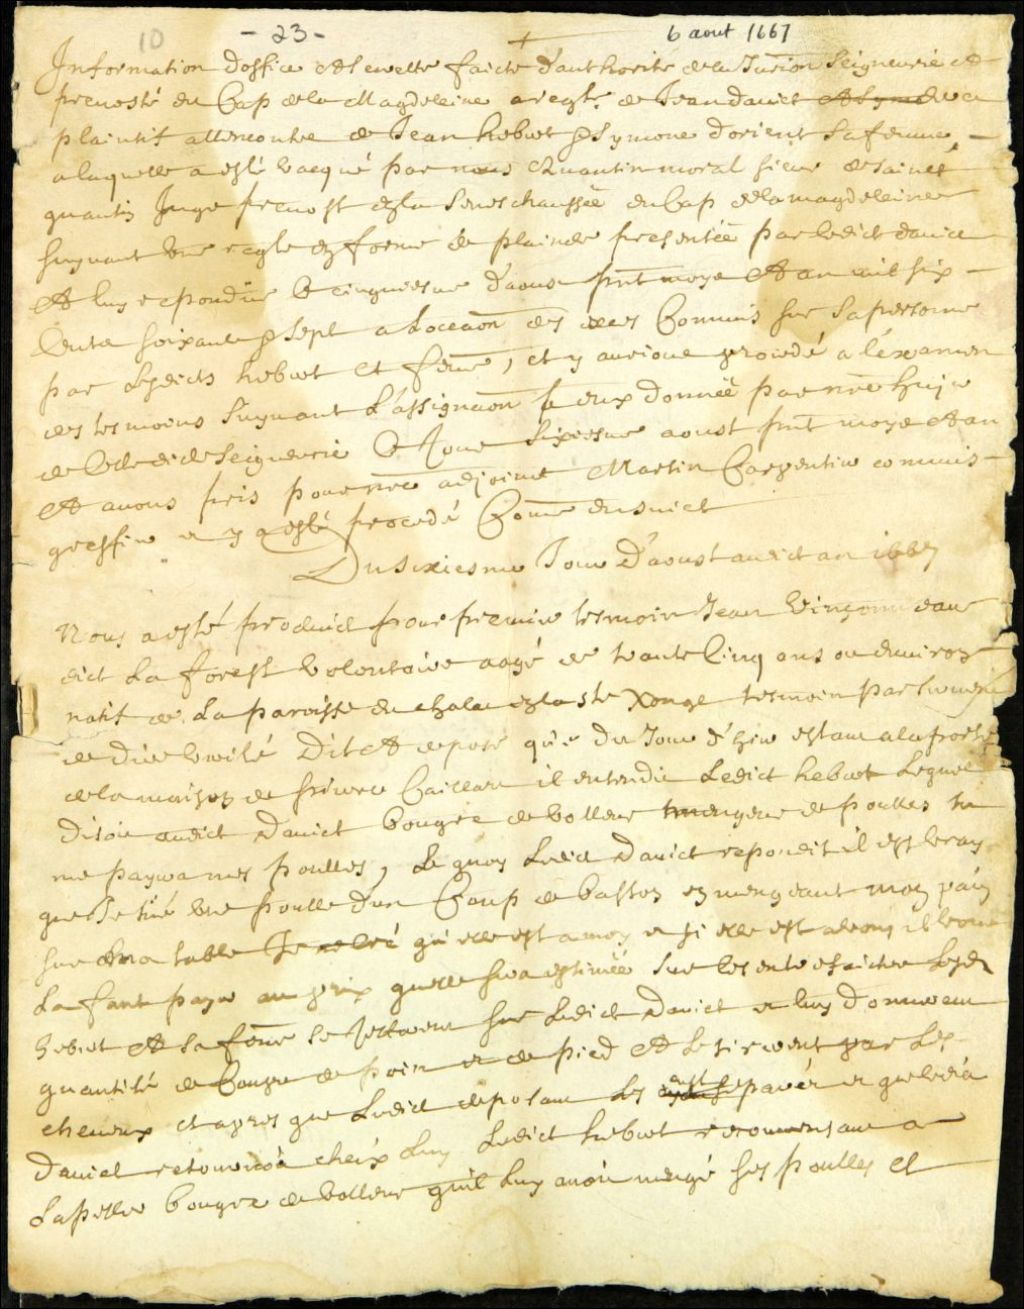 10 - 23 - 6 aout 1667
Information d'office et secrette faicte d'authorité de la Jurion Seigneurie et
prevosté du Cap de la Magdeleine a reqte de Jean daniel
plaintif allencontre de Jean hebert & Symone dorient sa femme,
a laquelle a esté vacqué par nous Quantin moral sieur de Sainct
quantin Juge prevost en la Seneschaussée du Cap de la magdeleine
suyvant une reqte en forme de plaincte presentée par ledict daniel
et luy repondue le cinquiesme d'aoust pnt moys et an mil six
Cents soixante & sept a Loccaon des exces Commis sur sa personne
par Lesdicts hebert et feme, et y avrions procedé a l'examen
des tesmoins suyvant L'assignaon a eux donnée par nre huissier
de ladicte Seigneurie Ce Jour Sixiesme aoust pnt moys et an
et avons pris pour nre adjoinct Martin Carpentier commis
greffier et y a esté procedé Comme ensuict
Du sixiesme Jour D'aoust audict an 1667
Nous a esté produict pour premier tesmoin Jean
dict La forest volontaire aagé de trante Cinq ans ou environ
natif de La paroisse du en tesmoin par serment
de dire verité Dit et depose que du Jour d'hier estant a la porte
de la maison de pierre Caillou il entendit Ledict hebert Lequel
Disoit audict Daniel bougre de volleur mangeur de poulles tu
me payera mes poulles, Ce quoy Ledict Daniel repondit il est vray
que Je tué une poulle d'un Coup de baston en mengeant mon pain
sur ma table qu'elle est a moy et si elle est a vous il vous
La faut payer au prix quelle sera estimée Sur lesentrefaictes Lesd
hebert et sa feme se Jetterent sur Ledict Daniel et luy Donnerent
quantité de Coups de poin et de pied et Le tirerent par Les
cheveux et apres que Ledict deposant Les eust separés et que ledict
Daniel retourné cheix Luy Ledict hebert recommensant a
Lapeller bougre de volleur qu'il Luy avoit mengé ses poulles et